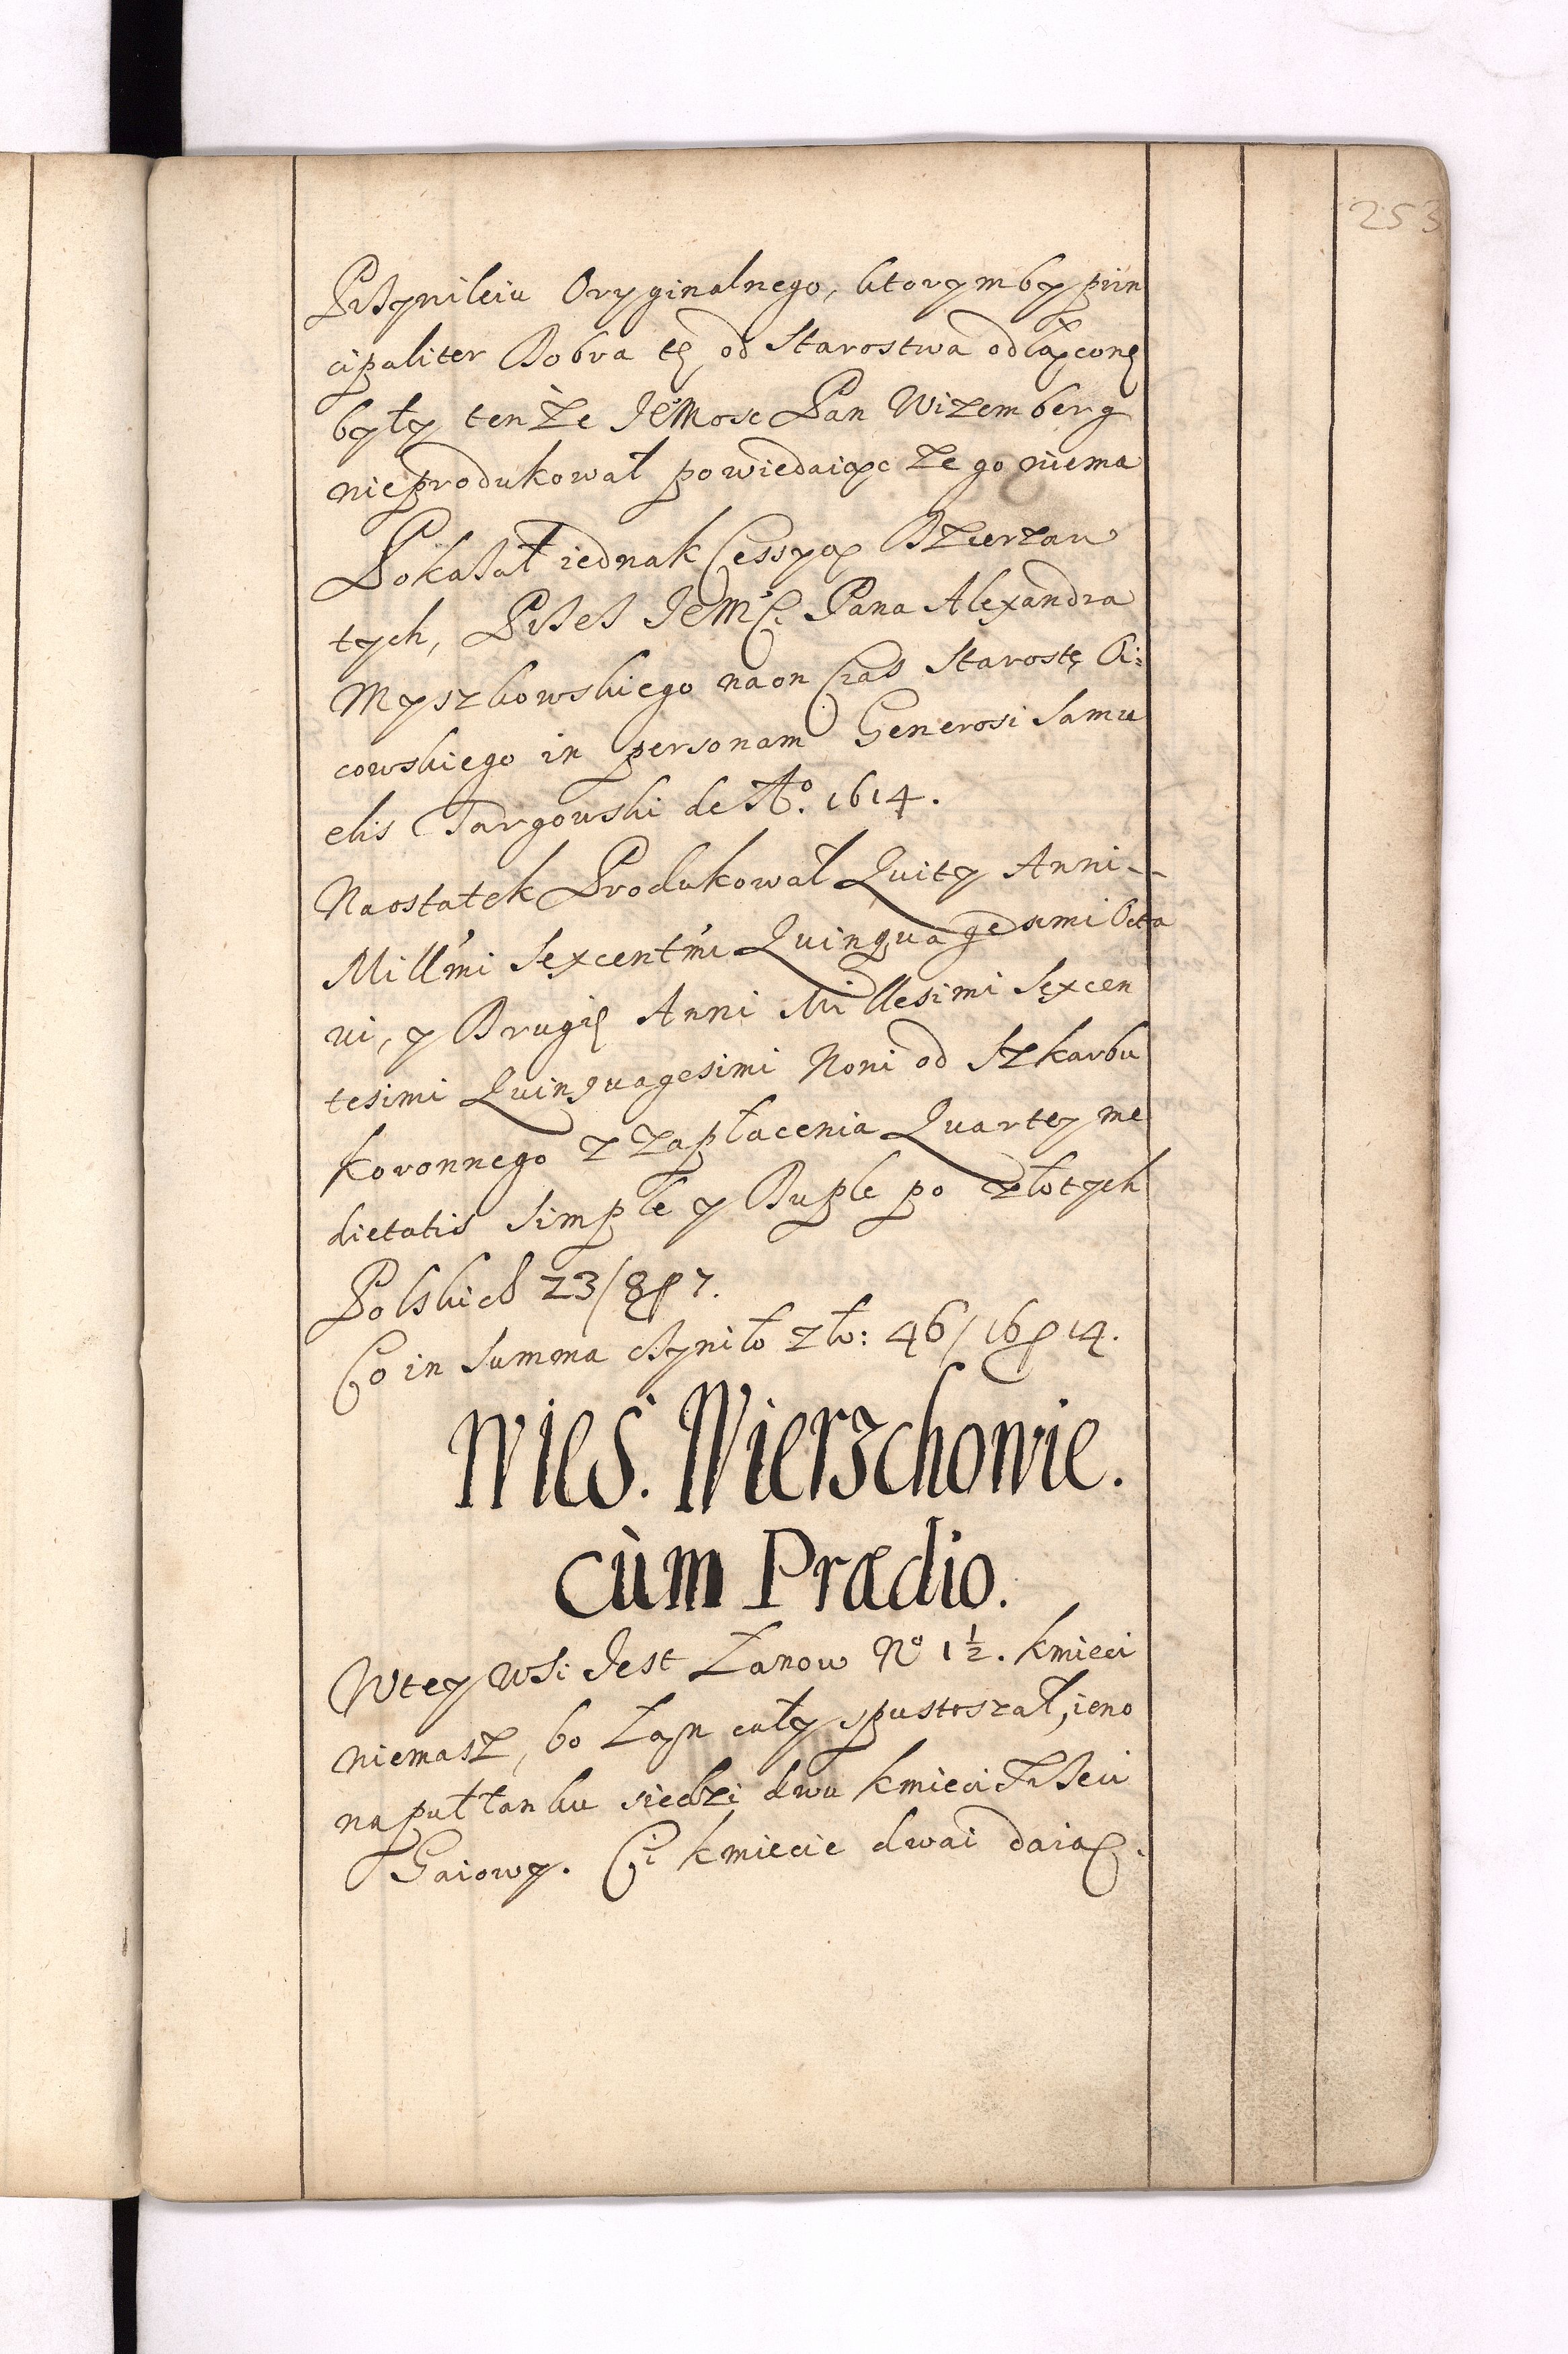 253
Przywileiu Oryginalnego, ktorymby prin
cipaliter Dobra te od Starostwa odłączone
były tenże JeMosc Pan Wizemberg
nieprodukował powiedaiąc że go niema
Pokazał iednak Cessyą Dzierzaw
tych, Przez JeMCi Pana Alexandra
Myszkowskiego na on Czas Starostę Oi:
cowskiego in personam Generosi Samu
elis Targowski de Ao. 1614.
Naostatek Produkował Quity Anni
Mill'mi Sexcent'mi Quinquagesimi Octa
vi, y Drugie Anni Millesimi Sexcen
tesimi Quinquagesimi Noni od Szkarbu
koronnego z zapłacenia Quarty me
dietatis Simple y Duple po złotych
Polskich 23/8/7.
Co in Summa czyniło zło: 46/16/14.
Wies. Wierzchowie.
cùm Prædio.
W tey wsi Jest Łanow No 1½. kmieci
niemasz, bo Łan cały spustoszał, ieno
na puł łanku siedzi dwu kmieci Trzeci
Gaiowy. Ci kmiecie dwai daią.